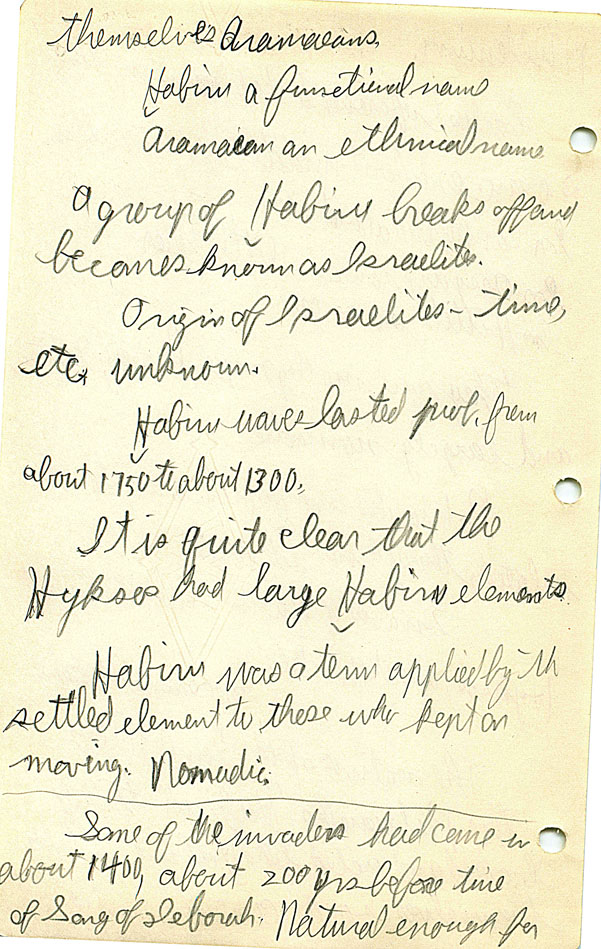 themselves Aramaeans.
Ḫabiru a functional name
Aramaean an ethnical name
A group of Ḫabiru breaks off and
becomes known as Israelites.
Origin of Israelites - time,
etc. unknown.
Ḫabiru waves lasted prob. from
about 1750 to about 1300.
It is quite clear that the
Hyksos had large Ḫabiru elements.
Habiru was a term applied by th
settled element to those who kept on
moving. Nomadic.
Some of the invaders had come in
about 1400, about 200 yrs before time
of Song of Deborah. Natural enough for